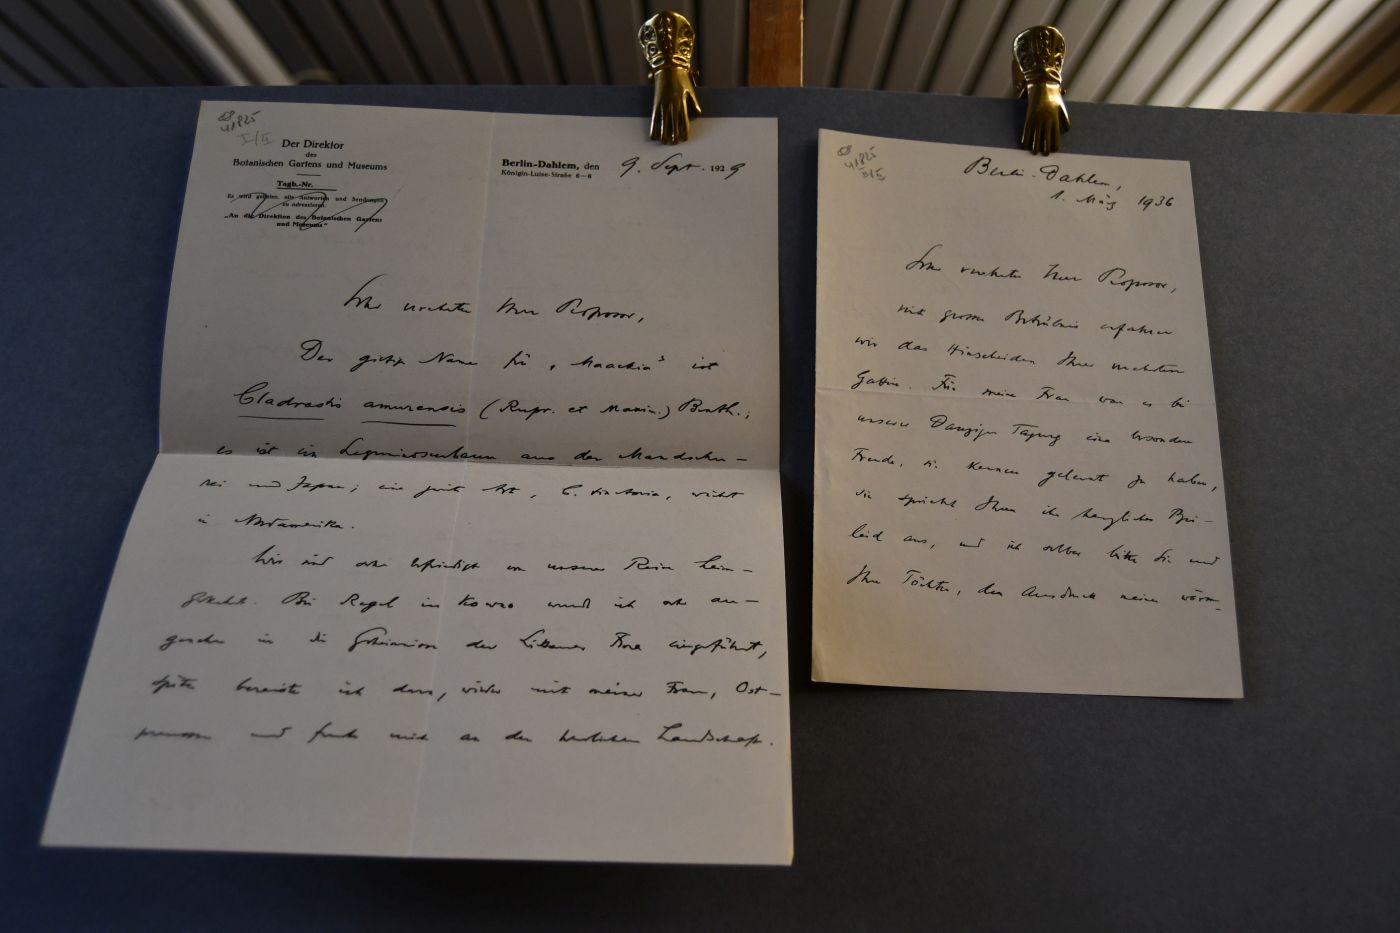 68
41825
I/II
Der Direktor
des
Botanischen Gartens und Museums
Tagb.-Nr.
Es wird gebeten, alle Antworten und Sendungen
zu adressieren:
„An die Direktion des Botanischen Gartens
und Museums“
Berlin-Dahlem, den 9. Sept. 1929
Königin-Luise-Straße 6-8
Sehr verehrter Herr Professor,
Der giltige Name für „Maackia“ ist
Cladrastis amurensis (Rupr. et Maxim.) Benth.;
es ist ein Leguminosenbaum aus der Mandschu-
rei und Japan; eine zweite Art, C. tinctoria, wächst
in Nordamerika.
Wir sind sehr befriedigt von unserer Reise heim-
gekehrt. Bei Regel in Kowno wurde ich sehr an-
genehm in die Geheimnisse der Litauer Flora eingeführt,
später bereiste ich dann, wieder mit meiner Frau, Ost-
preussen und freute mich an der herrlichen Landschaft.
68
41825
Berlin-Dahlem,
1. März 1936
Sehr verehrter Herr Professor,
mit grosser Betrübnis erfahren
wir das Hinscheiden Ihrer verehrten
Gattin. Für meine Frau war es bei
unserer Danziger Tagung eine besondere
Freude, sie kennen gelernt zu haben,
sie spricht Ihnen ihr herzliches Bei-
leid aus, und ich selber bitte Sie und
Ihre Töchter, den Ausdruck meiner wärm-